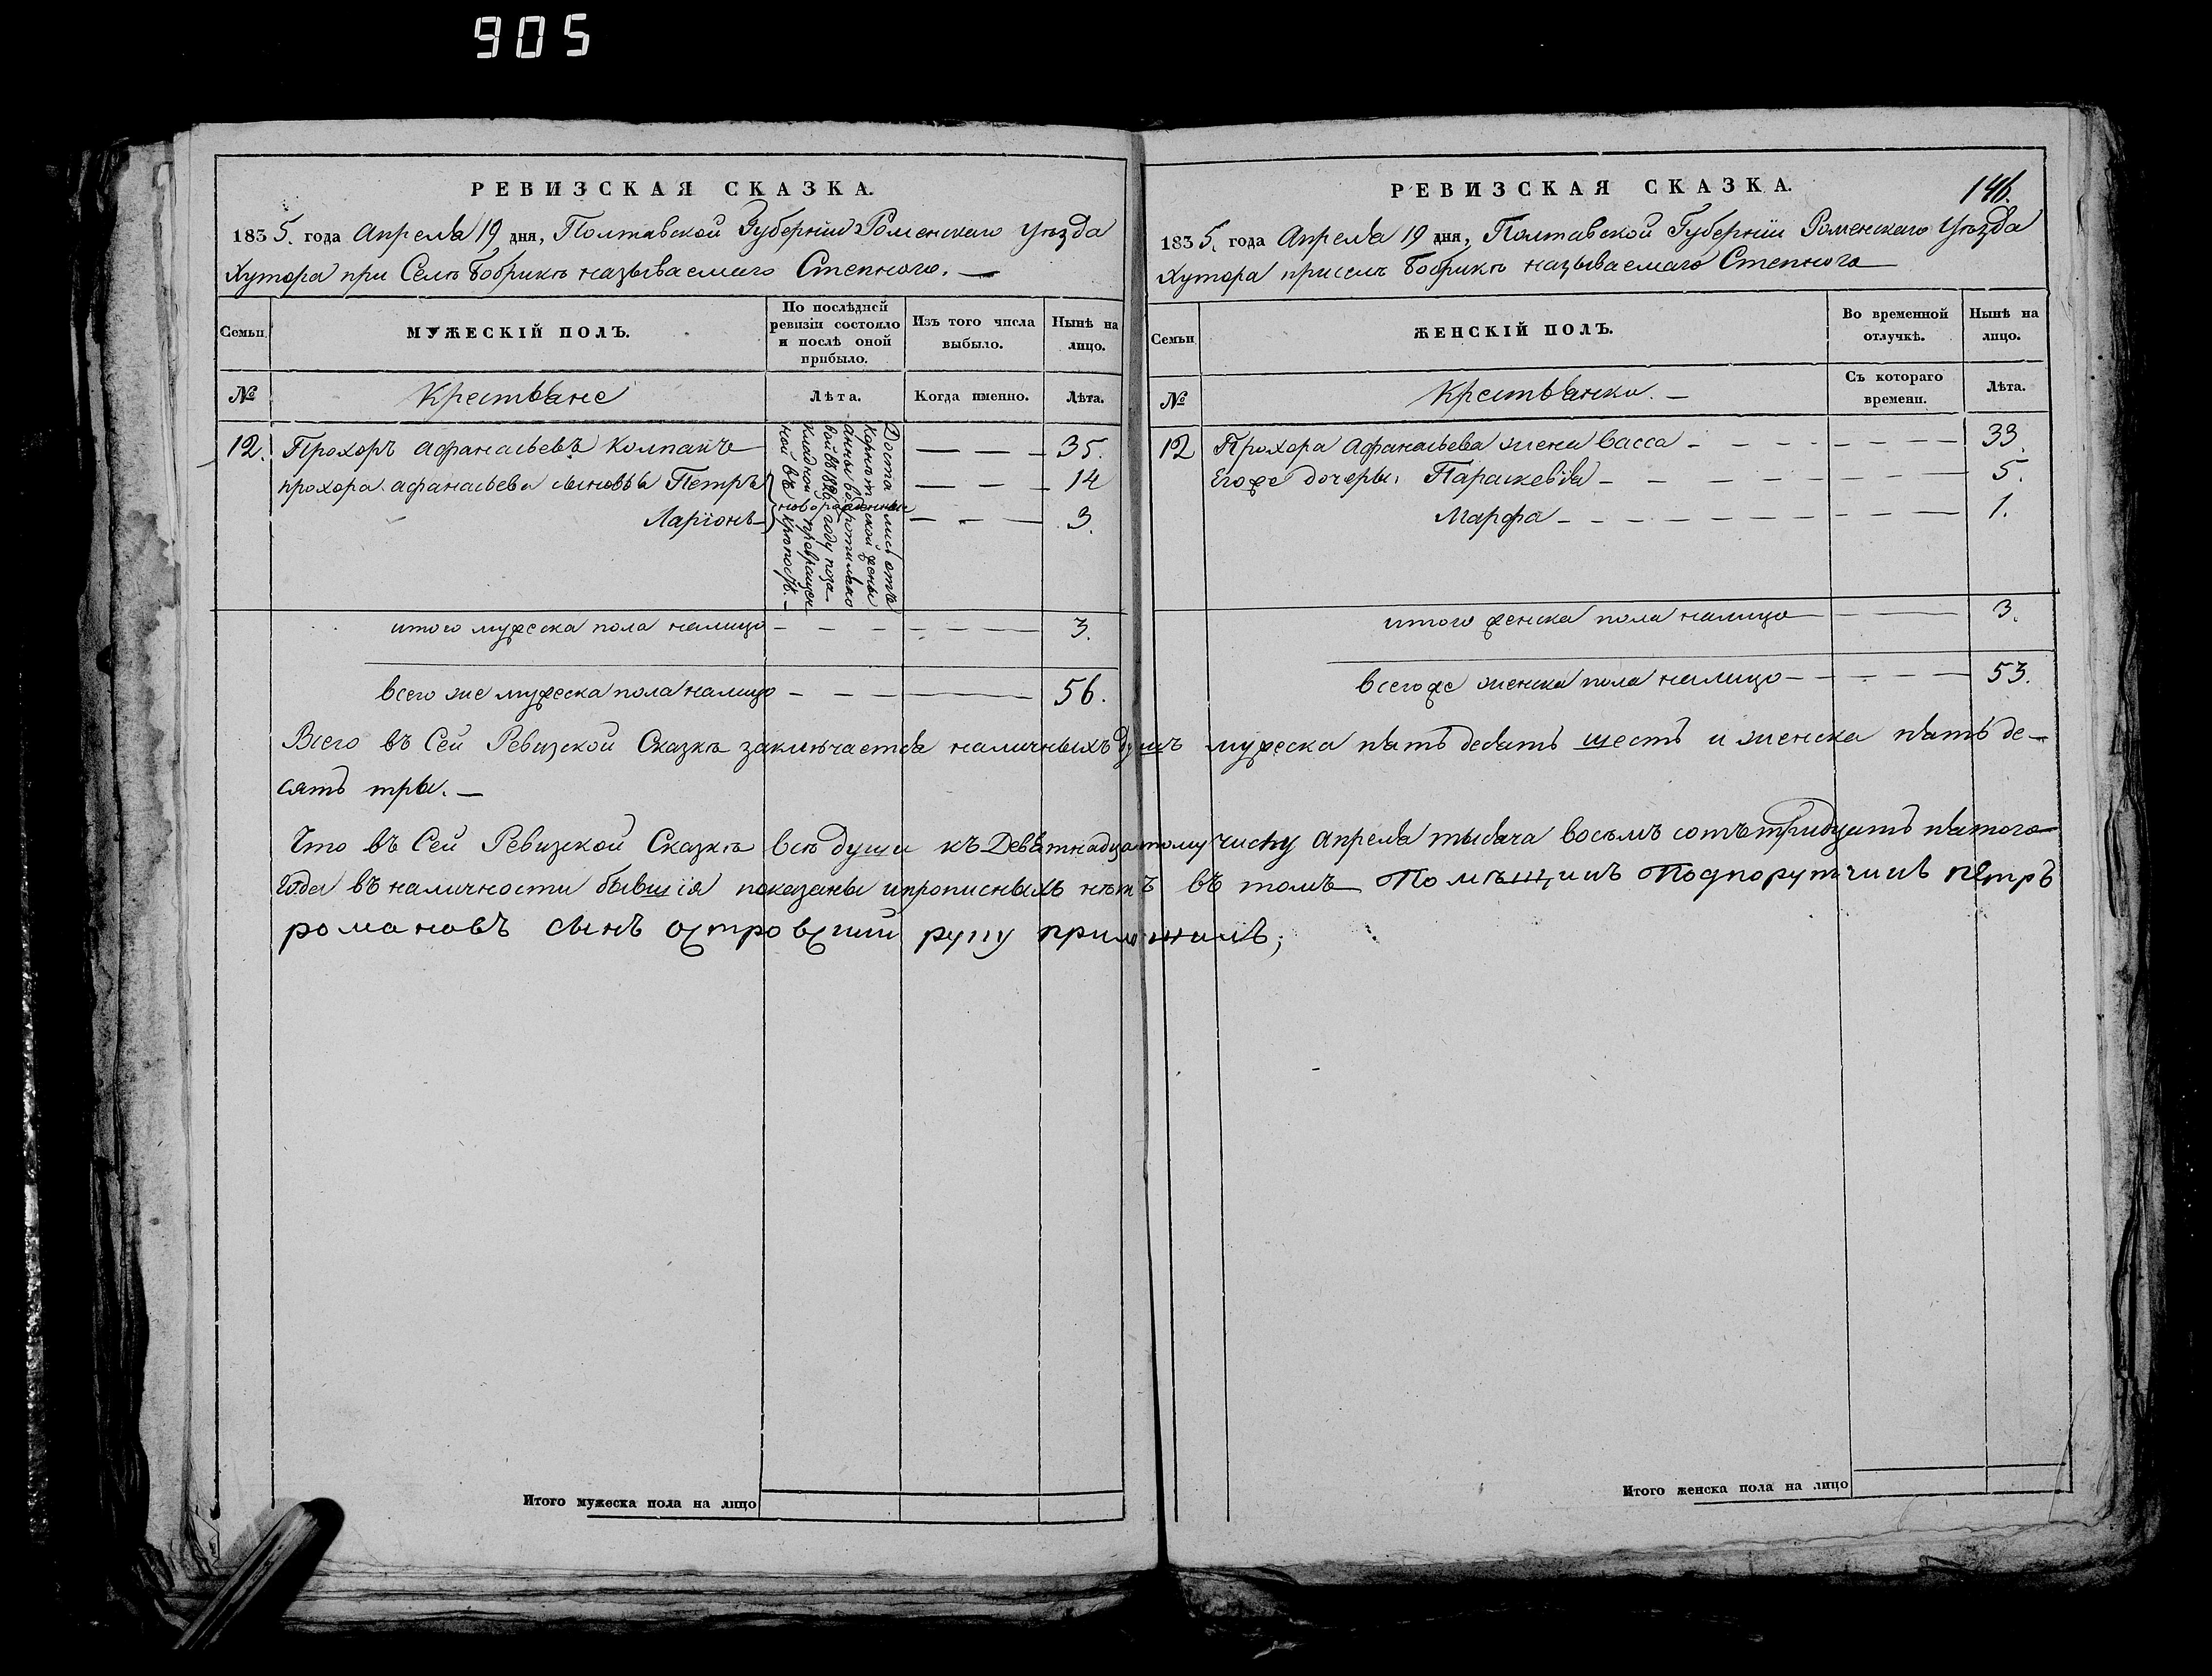 905
РЕВИЗСКАЯ СКАЗКА.
1835. года Апреля 19 дня, Полтавской Губернии Роменскаго Уѣзда
Хутора при Селѣ Бобрикѣ называемаго Степного.—
Семьи
МУЖЕСКІЙ ПОЛЪ.
По послѣдней ревизіи состояло и послѣ оной прибыло.
Изъ того числа выбыло.
Нынѣ на лицо.
№
Крестьяне
Лѣта.
Когда именно.
Лѣта.
12. Прохоръ Афанасьевъ Колпакъ — — — 35.
прохора афанасьева сыновья Петръ — — — 14
Ларіонъ — — — 3.
новорожденные
Достались отъ
ской жены
Анны
вой въ 1826 году по за
кладной превращен
ной въ крѣпость.—
итого мужеска пола налицо — — — — — 3.
всего же мужеска пола налицо — — — — 56.
РЕВИЗСКАЯ СКАЗКА.
146.
1835. года Апреля 19 дня, Полтавской Губерніи Роменскаго Уѣзда
Хутора приселѣ Бобрикѣ называемаго Степного
Семьи
ЖЕНСКІЙ ПОЛЪ.
Во временной отлучкѣ.
Нынѣ на лицо.
№
Крестьянки.—
Съ котораго времени.
Лѣта.
12 Прохора Афанасьева жена Васса — — — — — — 33.
Егоже дочеры: Параскевія — — — — — — 5.
Марфа — — — — — — — 1.
итого женска пола налицо — — 3.
всегоже женска пола налицо — — — — 53.
Всего въ Сей Ревизской Сказкѣ заключается наличныхъ душъ мужеска пять десять шесть и женска пять де-
сять три.—
Что въ Сей Ревизской Сказкѣ всѣ души къ Девятнадцатому числу Апреля тысяча восемъ сотъ тридцать пятого
года въ наличности бывшія показаны и прописныхъ нѣтъ въ томъ Помѣщикъ Подпорутчикъ петръ
романовъ сынъ островский руку приложилъ;
Итого мужеска пола на лицо
Итого женска пола на лицо